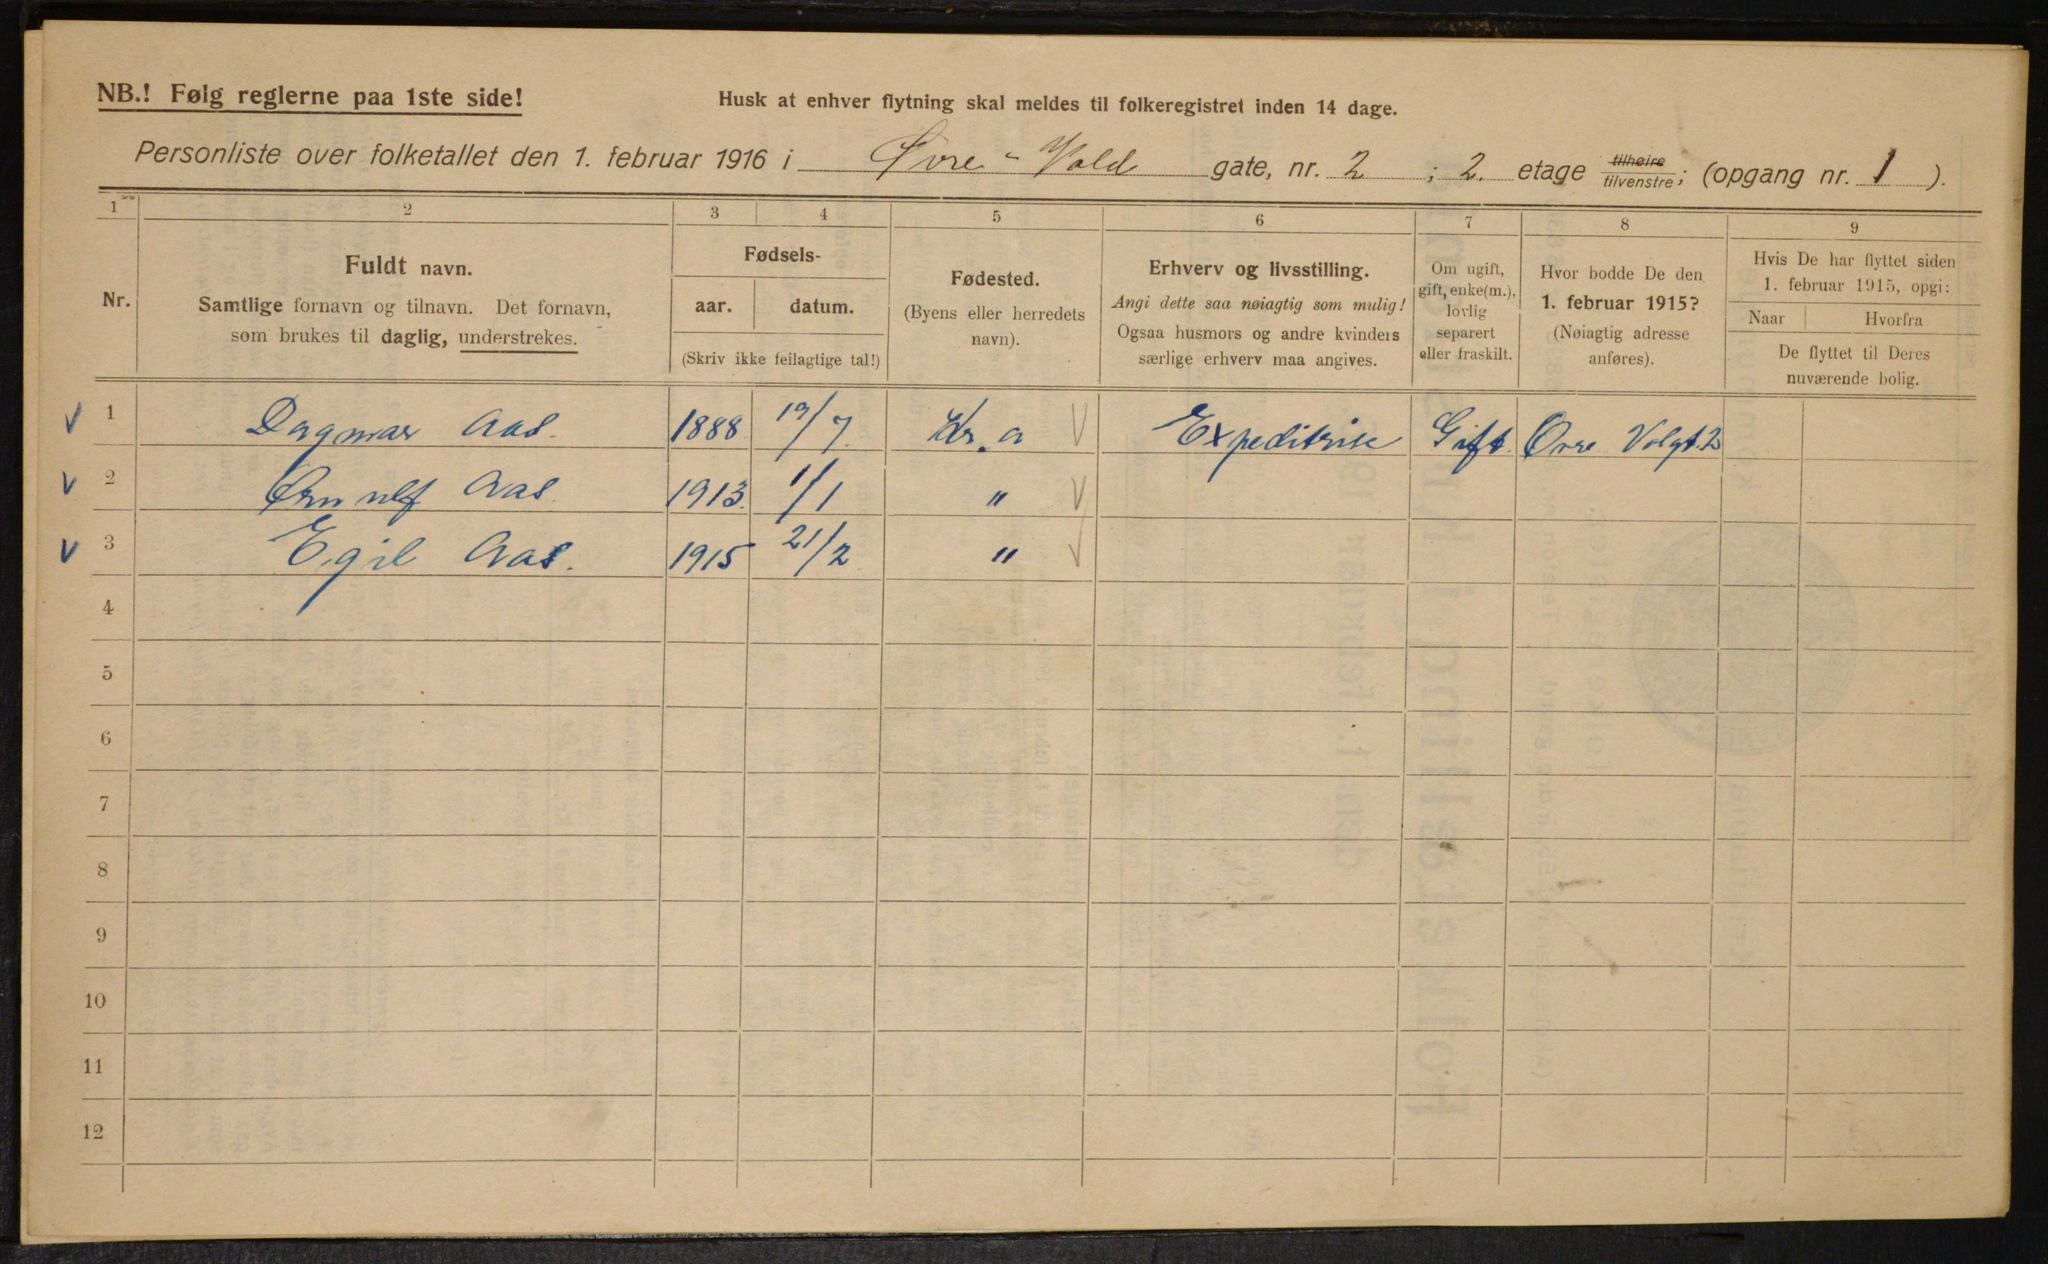 NB.! Følg reglerne paa 1ste side!
Husk at enhver flytning skal meldes til folkeregistret inden 14 dage.
Personliste over folketallet den 1. februar 1916 i Øvre - Vold gate, nr. 2 ; 2. etage tilhøire / tilvenstre; (opgang nr. 1 ).
1 2 3 4 5 6 7 8 9
Nr.
Fuldt navn.
Samtlige fornavn og tilnavn. Det fornavn,
som brukes til daglig, understrekes.
Fødsels-
aar. datum.
(Skriv ikke feilagtige tal!)
Fødested.
(Byens eller herredets
navn).
Erhverv og livsstilling.
Angi dette saa nøiagtig som mulig!
Ogsaa husmors og andre kvinders
særlige erhverv maa angives.
Om ugift,
gift, enke(m.),
lovlig
separert
eller fraskilt.
Hvor bodde De den
1. februar 1915?
(Nøiagtig adresse
anføres).
Hvis De har flyttet siden
1. februar 1915, opgi:
Naar Hvorfra
De flyttet til Deres
nuværende bolig.
1 Dagmar Aas. 1888 19/7 Kr.a Expeditrise Gift. Øvre Volgt. 2
2 Ørnulf Aas 1913. 1/1 "
3 Egil Aas. 1915 21/2 "
4
5
6
7
8
9
10
11
12